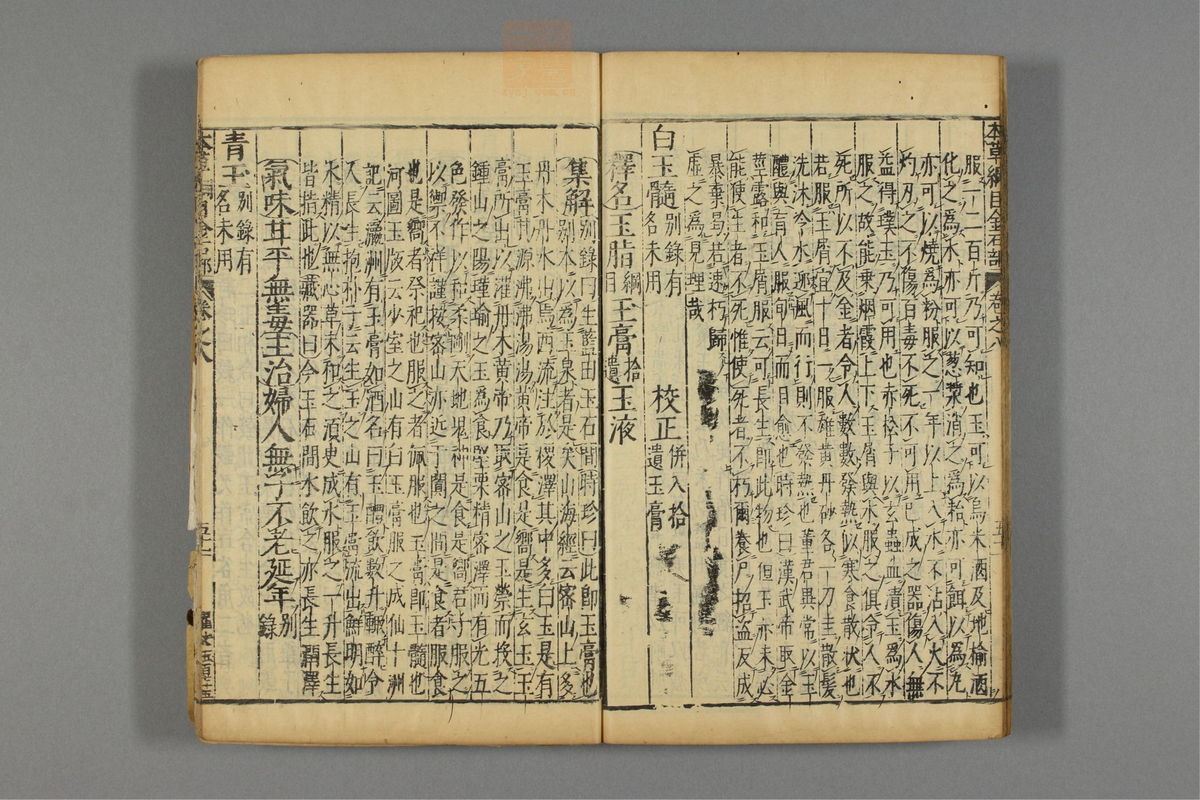 本草綱目金石部 卷之八
服一二百斤乃可知也玉可以烏米酒及地榆酒
化之爲水亦可以葱漿消之爲粭亦可餌以爲丸
亦可以燒爲粉服之一年以上入水不沾入火不
灼刃之不傷百毒不死不可用已成之器傷人無
益得璞玉乃可用也赤松子以玄蟲血漬玉爲水
服之故能乗烟霞上下玉屑與水服之俱令人不
死所以不及金者令人數數發熱似寒食散狀也
若服玉屑宜十日一服雄黄丹砂各一刀圭散髮
洗沐冷水迎風而行則不發熱也董君異常以玉
醴與盲人服旬日而目愈也時珍曰漢武帝取金
莖露和玉屑服云可長生即此物也但玉亦未必
能使生者不死惟使死者不朽爾養尸招盜反成
暴棄曷若速朽歸
虛之爲見理哉
白玉髓别錄有名未用 校正併入拾遺玉膏
釋名玉脂綱目玉膏拾遺玉液
集解别錄曰生藍田玉石間時珍曰此即玉膏也
别本以爲玉泉者是矣山海經云密山上多
丹木丹水出焉西流注於稷澤其中多白玉是有
玉膏其源沸沸湯湯黄帝是食是饗是生玄玉玉
膏所出以灌丹木黄帝乃取密山之玉榮而投之
鍾山之陽瑾瑜之玉爲食堅栗精密澤而有光五
色發作以和柔剛天地鬼神是食是饗君子服之
以禦不祥謹按密山亦近于闐之間是食者服食
也是饗者祭祀也服之者佩服也玉膏即玉髓也
河圖玉版云少室之山有白玉膏服之成仙十洲
記云瀛洲有玉膏如酒名曰玉醴飲數升輒醉令
人長生抱朴子云生玉之山有玉膏流出鮮明如
水精以無心草末和之湏臾成水服之一升長生
皆指此也藏器曰今玉石間水飲之亦長生潤澤
氣味甘平無毒主治婦人無子不老延年别錄
青玉别錄有名未用